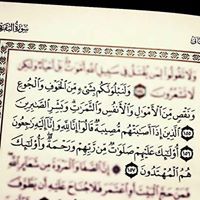 سُورَةُ الْبَقَرَةِ
وَلَا تَقُولُوا لِمَن يُقْتَلُ فِي سَبِيلِ اللَّهِ أَمْوَاتٌ بَلْ أَحْيَاءٌ وَلَٰكِن
لَّا تَشْعُرُونَ ١٥٤ وَلَنَبْلُوَنَّكُم بِشَيْءٍ مِّنَ الْخَوْفِ وَالْجُوعِ
وَنَقْصٍ مِّنَ الْأَمْوَالِ وَالْأَنفُسِ وَالثَّمَرَاتِ وَبَشِّرِ الصَّابِرِينَ
١٥٥ الَّذِينَ إِذَا أَصَابَتْهُم مُّصِيبَةٌ قَالُوا إِنَّا لِلَّهِ وَإِنَّا إِلَيْهِ رَاجِعُونَ
١٥٦ أُولَٰئِكَ عَلَيْهِمْ صَلَوَاتٌ مِّن رَّبِّهِمْ وَرَحْمَةٌ وَأُولَٰئِكَ
هُمُ الْمُهْتَدُونَ ١٥٧ إِنَّ الصَّفَا وَالْمَرْوَةَ مِن شَعَائِرِ اللَّهِ
فَمَنْ حَجَّ الْبَيْتَ أَوِ اعْتَمَرَ فَلَا جُنَاحَ عَلَيْهِ أَن يَطَّوَّفَ